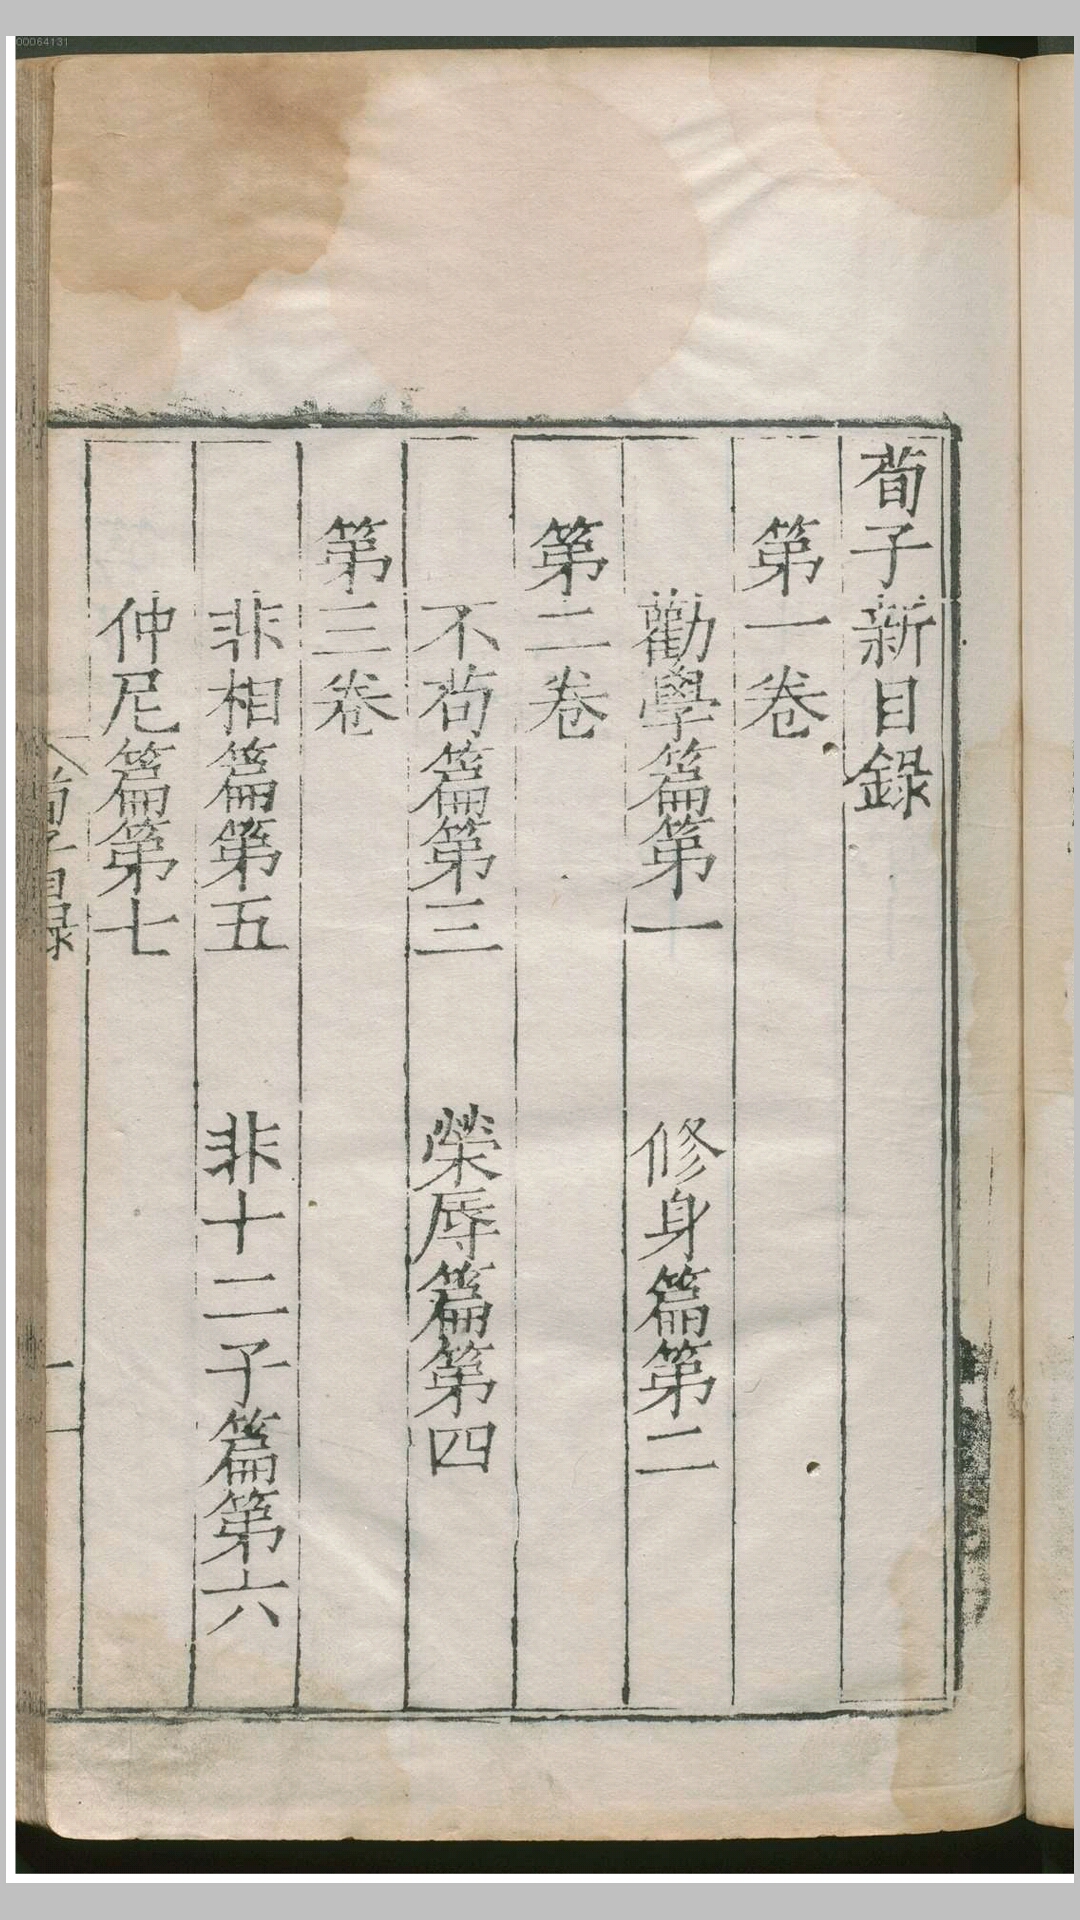 00064131
荀子新目錄
第一卷
勸學篇第一 修身篇第二
第二卷
不苟篇第三 榮辱篇第四
第三卷
非相篇第五 非十二子篇第六
仲尼篇第七
荀子目録 一